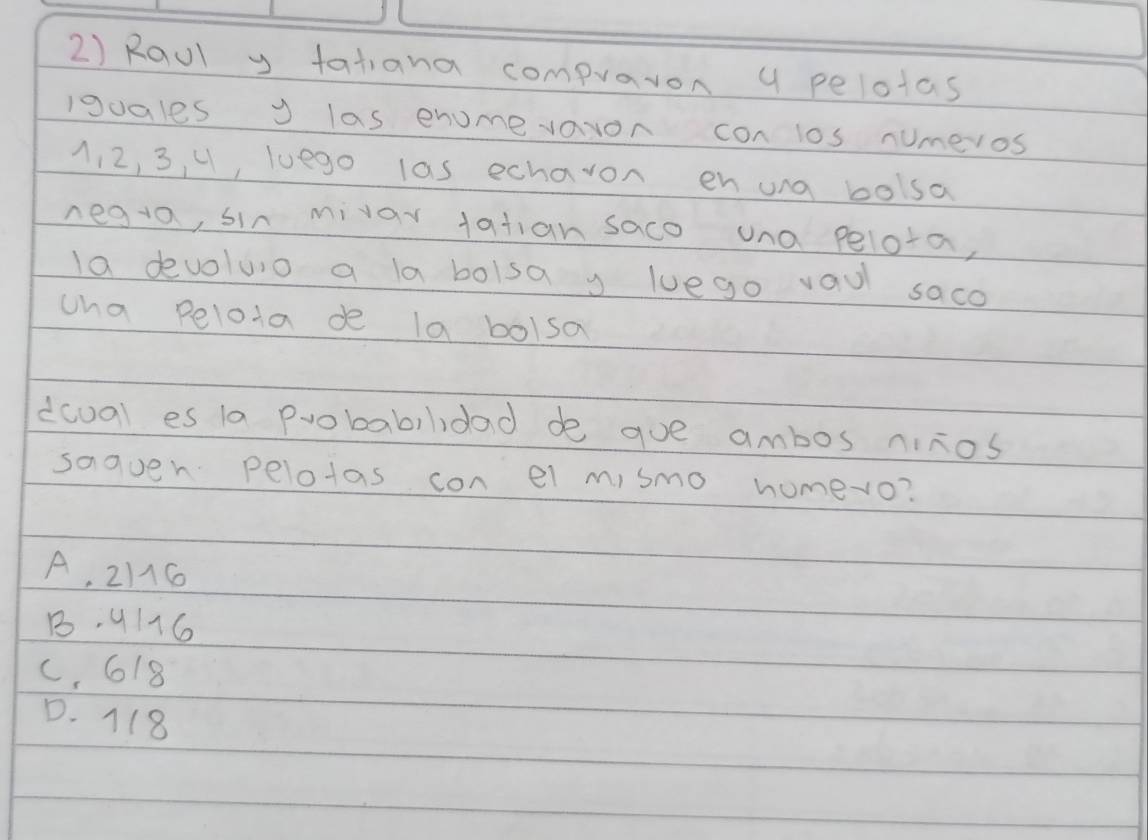 2) Raul y tatiana compraron 4 pelotas
iguales y las enumeraron con los numeros
1,2,3,4, luego las echaron en una bolsa
negra, sin mirar tatian saco una pelota,
la devolvio a la bolsa y luego raul saco
una pelota de la bolsa
¿cual es la probabilidad de que ambos niños
saquen pelotas con el mismo numero?
A. 2/16
B. 4/16
C. 6/8
D. 1/8